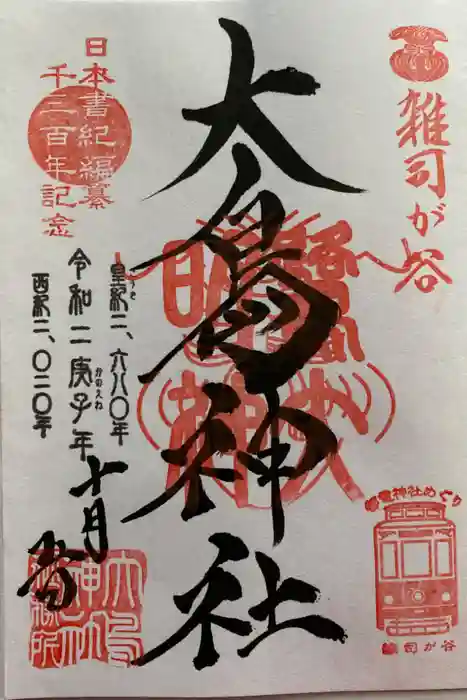 雑司が谷
大鳥神社
日本書紀編纂
千三百年記念
皇紀二、六八〇年
令和二庚子年
かのえね
西紀二、〇二〇年
十月
大鳥
神社
神社めぐり
司が谷